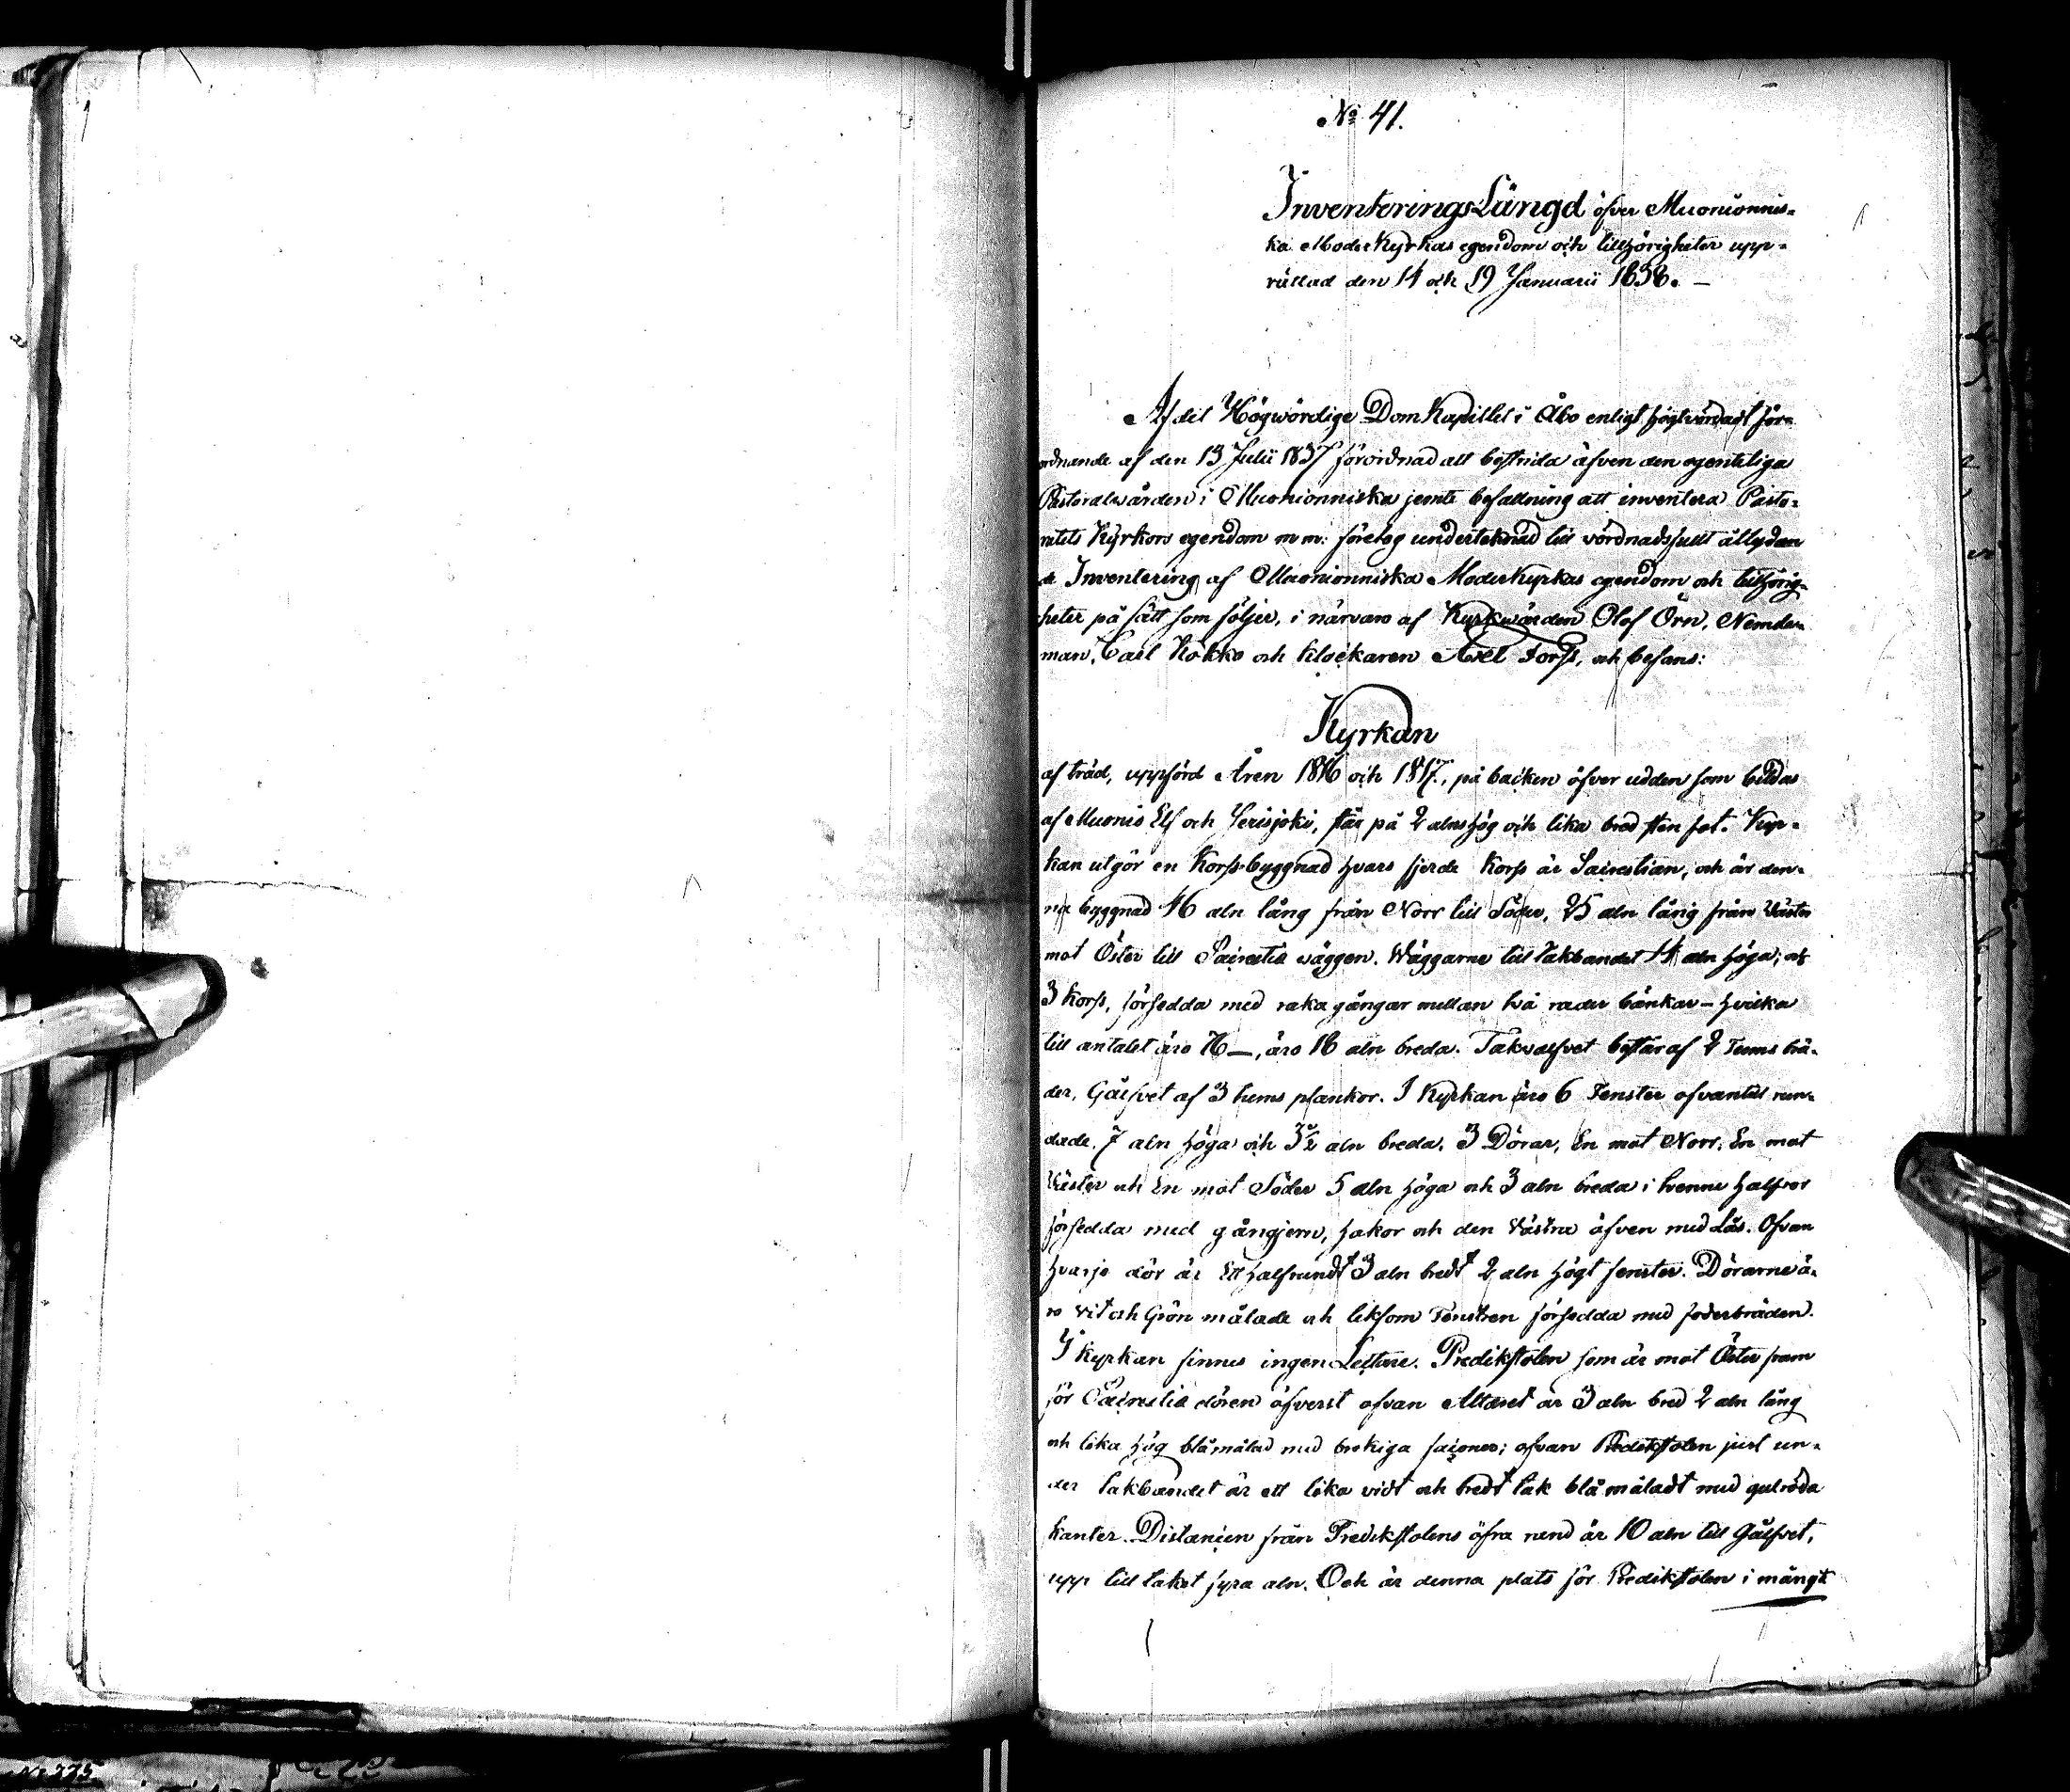 No 41.
Inventerings Längd öfver Muonionnis-
ka Moder Kyrkas egendom och tillhörigheter upp-
rättad den 14 och 19 Januarii 1838. –
Af det Högwördige Dom Kapitlet i Åbo enligt högtvördadt för-
ordnande af den 13 Julii 1837 förordnad att bestrida äfven den egenteliga
Pastoralwården i Muonionniska jemte befallning att inventera Pasto-
ratets Kyrkors egendom m m: företog undertecknad till vördnadsfullt åtlydan-
de Inventering af Muonionniska Moderkyrkas egendom och tillhörig-
heter på sätt som följer, i närvaro af Kyrkwärden Olof Örn, Nemde-
man, Carl Kokko och klockaren Axel Forss, och befans:
Kyrkan
af träd, uppförd Åren 1816 och 1817, på backen öfver udden som bildas
af Muonio Elf och Jerisjoki, står på 2 alns hög och lika bred sten fot. Kyr-
kan utgör en Korss-byggnad hvars fjerde Korss är Sacrestian, och är den-
na byggnad 46 aln lång från Norr till Söder, 25 aln lång från Väster
mot Öster till Sacrestie väggen. Wäggarne till takbandet 14 aln höga; och
3 Korss, försedda med raka gångar mellan två rader bänkar – hvilka
till antalet äro 76 —, äro 16 aln breda. Takvalfvet består af 2 Tums brä-
der, Gålfvet af 3 tums plankor. I Kyrkan äro 6 Fenster ofvantill run-
dade, 7 aln höga och 3½ aln breda. 3 Dörar, En mot Norr, En mot
Väster och En mot Söder 5 aln höga och 3 aln breda i tvenne halfvor
försedda med gångjern, hakor och den Västra äfven med Lås. Ofvan
hvarje dör är Ett halfrundt 3 aln bredt 2 aln högt fenster. Dörarne ä-
ro Vit och Grön målade och liksom Fenstren försedda med foderbräden.
I Kyrkan finnes ingen Lectare. Predikstolen som är mot Öster fram
för Sacrestie dören öfverst ofvan Altaret är 3 aln bred 2 aln lång
och lika hög blåmålad med brokiga façoner; ofvan Predikstolen just un-
der takbandet är ett lika vidt och bredt tak blåmåladt med gulröda
kanter. Distancen från Predikstolens öfra rand är 10 aln till Gålfvet,
upp till taket fyra aln. Och är denna plats för Predikstolen i mångt